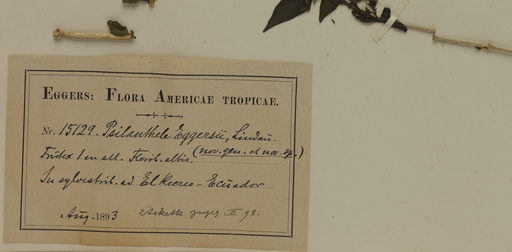 EGGERS: FLORA AMERICAE TROPICAE.
Nr. 15129. Psilanthele Eggersii, Lindau.
Frutex 1 m alt. Florib. albis. (nov. gen. et nov. sp.)
In sylvestrib. ad El Recreo - Ecuador
Aug. 1893 II. 98.